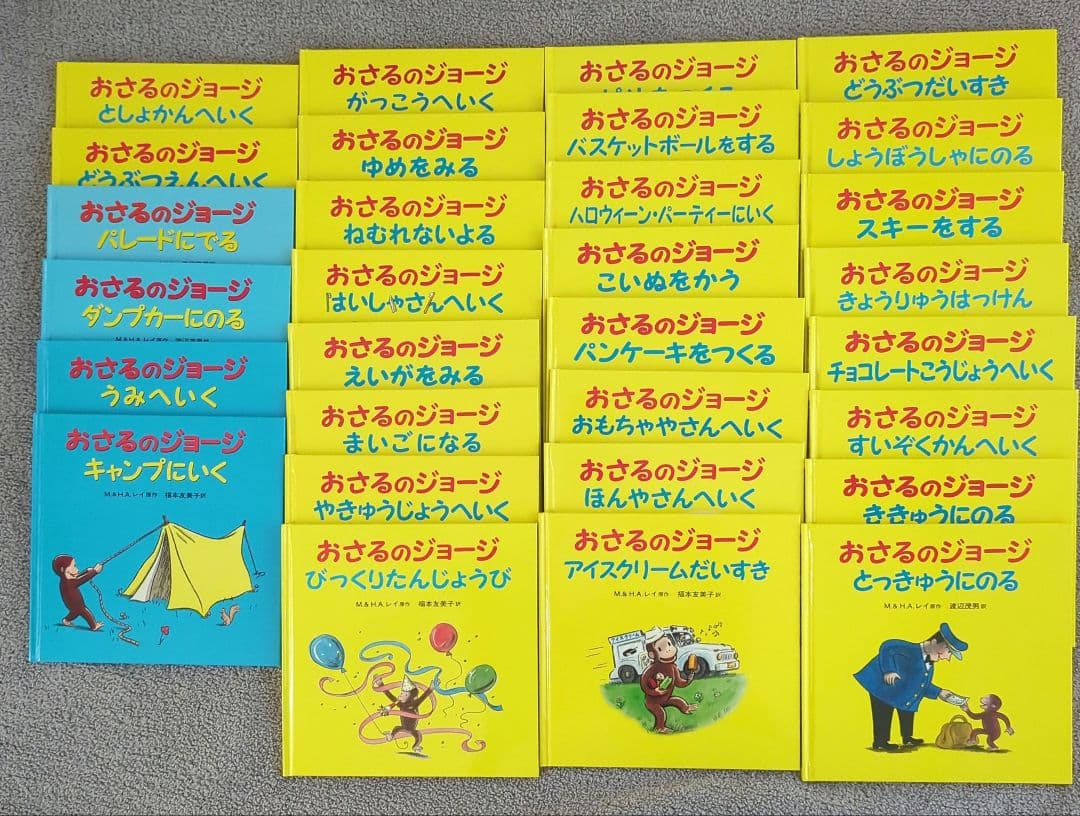 おさるのジョージ
としょかんへいく
おさるのジョージ
どうぶつえんへいく
おさるのジョージ
パレードにでる
おさるのジョージ
ダンプカーにのる
M.& H.A.レイ原作 渡辺茂男訳
おさるのジョージ
うみへいく
おさるのジョージ
キャンプにいく
M.& H.A.レイ原作 福本友美子訳
おさるのジョージ
がっこうへいく
おさるのジョージ
ゆめをみる
おさるのジョージ
ねむれないよる
おさるのジョージ
はいしゃさんへいく
おさるのジョージ
えいがをみる
おさるのジョージ
まいごになる
おさるのジョージ
やきゅうじょうへいく
おさるのジョージ
びっくりたんじょうび
M.& H.A.レイ原作 福本友美子訳
おさるのジョージ
おさるのジョージ
バスケットボールをする
おさるのジョージ
ハロウィーン・パーティーにいく
おさるのジョージ
こいぬをかう
おさるのジョージ
パンケーキをつくる
おさるのジョージ
おもちゃやさんへいく
おさるのジョージ
ほんやさんへいく
おさるのジョージ
アイスクリームだいすき
M.& H.A.レイ原作 福本友美子訳
アイスクリーム
おさるのジョージ
どうぶつだいすき
おさるのジョージ
しょうぼうしゃにのる
おさるのジョージ
スキーをする
おさるのジョージ
きょうりゅうはっけん
おさるのジョージ
チョコレートこうじょうへいく
おさるのジョージ
すいぞくかんへいく
おさるのジョージ
ききゅうにのる
おさるのジョージ
とっきゅうにのる
M.& H.A.レイ原作 渡辺茂男訳